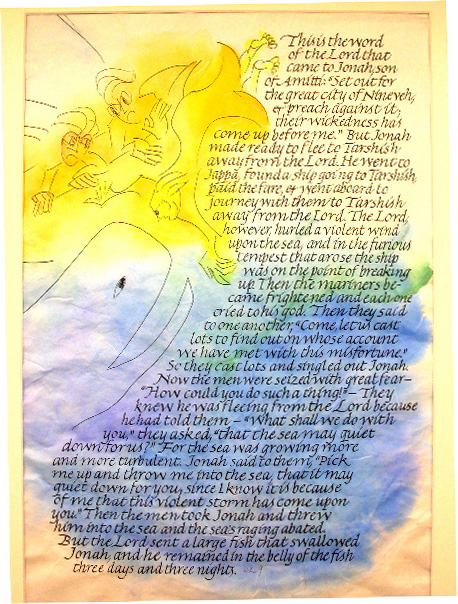 This is the word
of the Lord that
came to Jonah, son
of Amitti: "Set out for
the great city of Nineveh,
& preach against it;
their wickedness has
come up before me." But Jonah
made ready to flee to Tarshish
away from the Lord. He went to
Jappa, found a ship going to Tarshish,
paid the fare, & went aboard to
journey with them to Tarshish
away from the Lord. The Lord,
however, hurled a violent wind
upon the sea, and in the furious
tempest that arose the ship
was on the point of breaking
up. Then the mariners be-
came frightened and each one
cried to his god. Then they said
to one another, "Come, let us cast
lots to find out on whose account
we have met with this misfortune."
So they cast lots and singled out Jonah.
Now the men were seized with great fear—
"How could you do such a thing!"— They
knew he was fleeing from the Lord because
he had told them — "What shall we do with
you," they asked, "that the sea may quiet
down for us?" For the sea was growing more
and more turbulent. Jonah said to them, "Pick
me up and throw me into the sea, that it may
quiet down for you, since I know it is because
of me that this violent storm has come upon
you." Then the men took Jonah and threw
him into the sea and the sea's raging abated.
But the Lord sent a large fish that swallowed
Jonah and he remained in the belly of the fish
three days and three nights.